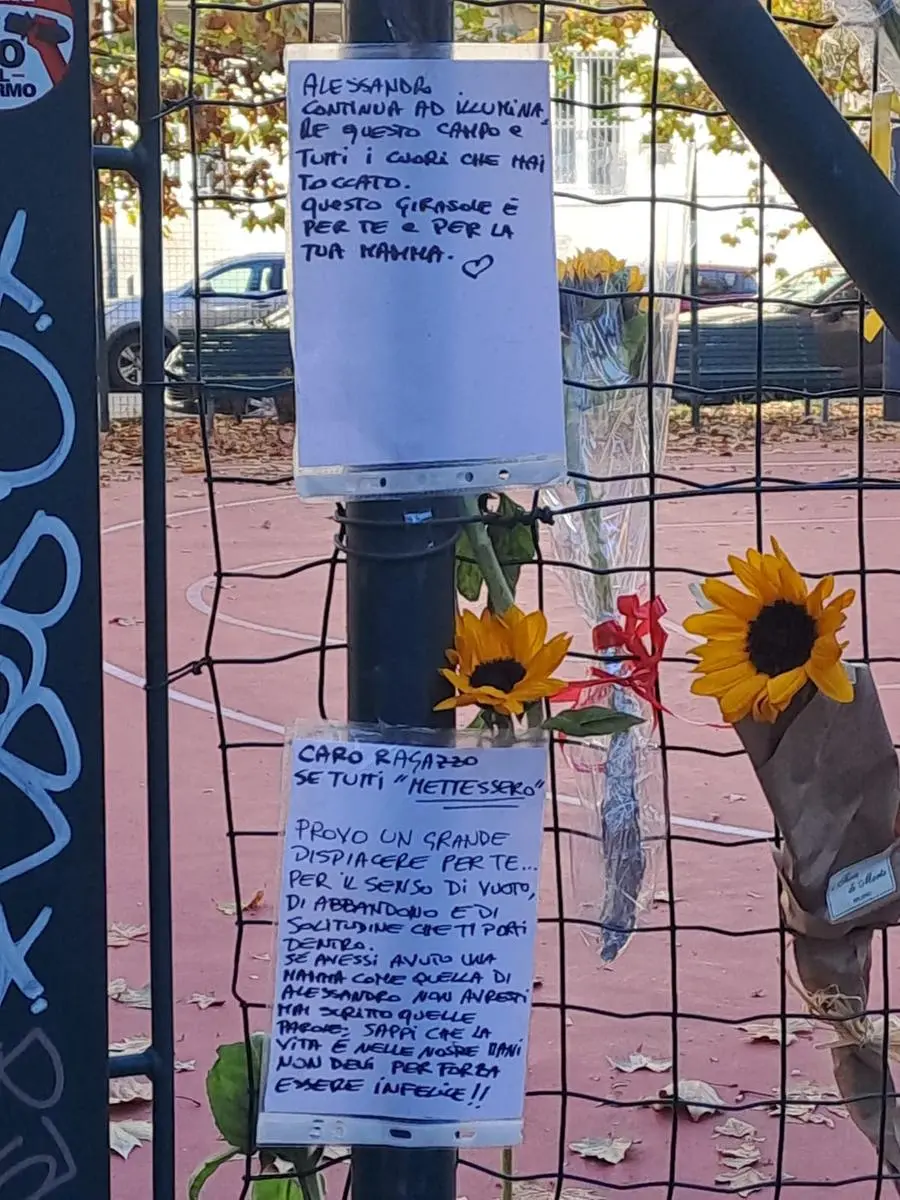 O
L-
RMO
ALESSANDRO
CONTINUA AD ILLUMINA
RE QUESTO CAMPO E
TUTTI I CUORI CHE HAI
TOCCATO.
QUESTO GIRASOLE È
PER TE E PER LA
TUA MAMMA. ♡
CARO RAGAZZO
SE TUTTI "METTESSERO"
PROVO UN GRANDE
DISPIACERE PER TE...
PER IL SENSO DI VUOTO,
DI ABBANDONO E DI
SOLITUDINE CHE TI PORTI
DENTRO.
SE AVESSI AVUTO UNA
MAMMA COME QUELLA DI
ALESSANDRO NON AVRESTI
MAI SCRITTO QUELLE
PAROLE; SAPPI CHE LA
VITA È NELLE NOSTRE MANI
NON DEVI PER FORZA
ESSERE INFELICE!!